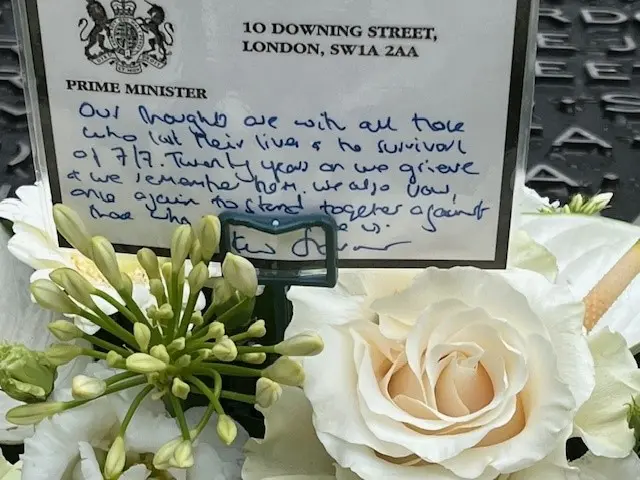 10 DOWNING STREET,
LONDON, SW1A 2AA
PRIME MINISTER
Our thoughts are with all those
who lost their lives & the survivors
of 7/7. Twenty years on we grieve
& we remember them. We also vow,
once again to stand together against
those who us.